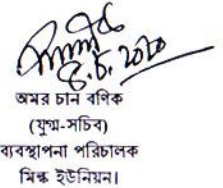 অমর চান বণিক
(যুগ্ম-সচিব)
ব্যবস্থাপনা পরিচালক
মিল্ক ইউনিয়ন।